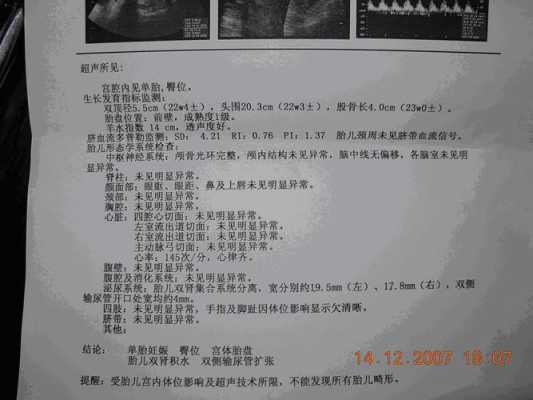 超声所见:
宫腔内见单胎,臀位。
生长发育指标监测:
双顶径5.5cm(22w4±),头围20.3cm(22w3±),股骨长4.0cm(23w0±)。
胎盘位置: 前壁,成熟度1级。
羊水指数 14 cm,透声度好。
脐血流多普勒监测: SD: 4.21 RI: 0.76 PI: 1.37 胎儿颈周未见脐带血流信号。
胎儿形态学系统检查:
中枢神经系统: 颅骨光环完整,颅内结构未见异常,脑中线无偏移,各脑室未见明
显异常。
脊柱: 未见明显异常。
颜面部: 眼眶、眼距、鼻及上唇未见明显异常。
颈部: 未见明显异常。
胸腔: 未见明显异常。
心脏: 四腔心切面: 未见明显异常。
左室流出道切面: 未见明显异常。
右室流出道切面: 未见明显异常。
主动脉弓切面: 未见明显异常。
心率: 145次/分,心律齐。
腹壁: 未见明显异常。
腹腔及消化系统: 未见明显异常。
泌尿系统: 胎儿双肾集合系统分离,宽分别约19.5mm(左)、17.8mm(右),双侧
输尿管开口处宽均约4mm。
四肢: 未见明显异常,手指及脚趾因体位影响显示欠清晰。
脐带: 未见明显异常。
其他:
结论: 单胎妊娠 臀位 宫体胎盘
胎儿双肾积水 双侧输尿管扩张
14.12.2007 16:07
提醒: 受胎儿宫内体位影响及超声技术所限,不能发现所有胎儿畸形。